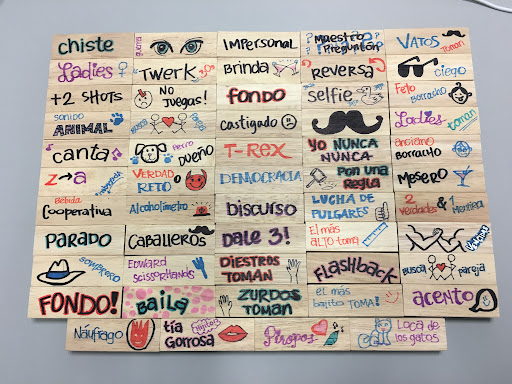 chiste
guerra
IMPERSONAL
Maestro
Preguntón
VATOS
Toman
Ladies
"Twerk
30"
Brinda
REVERSA
ciego
+2 SHOTS
NO
JUEGAS!
FONDO
selfie
Feo
Borracho
SONIDO
ANIMAL
Castigado
Ladies
Toman
canta
Perro
DUEÑO
T-REX
YO NUNCA
NUNCA
anciano
BORRACHO
Z→a
VERDAD
RETO
DEMOCRACIA
PON UNA
REGLA
MESERO
Bebida
Cooperativa
Alcoholímetro
DISCURSO
LUCHA DE
PULGARES
2
Verdades & 1
Mentira
PARADO
CABALLEROS
DALE 3!
El más
ALTO toma
SOMBRERO
EDWARD
SCISSORHANDS
DIESTROS
TOMAN
FLASHBACK
BUSCA
pareja
FONDO!
BAILA
ZURDOS
TOMAN
el más
bajito TOMA!
acento
Náufrago
tía
Gorrosa
Piropos
Loca de
los gatos